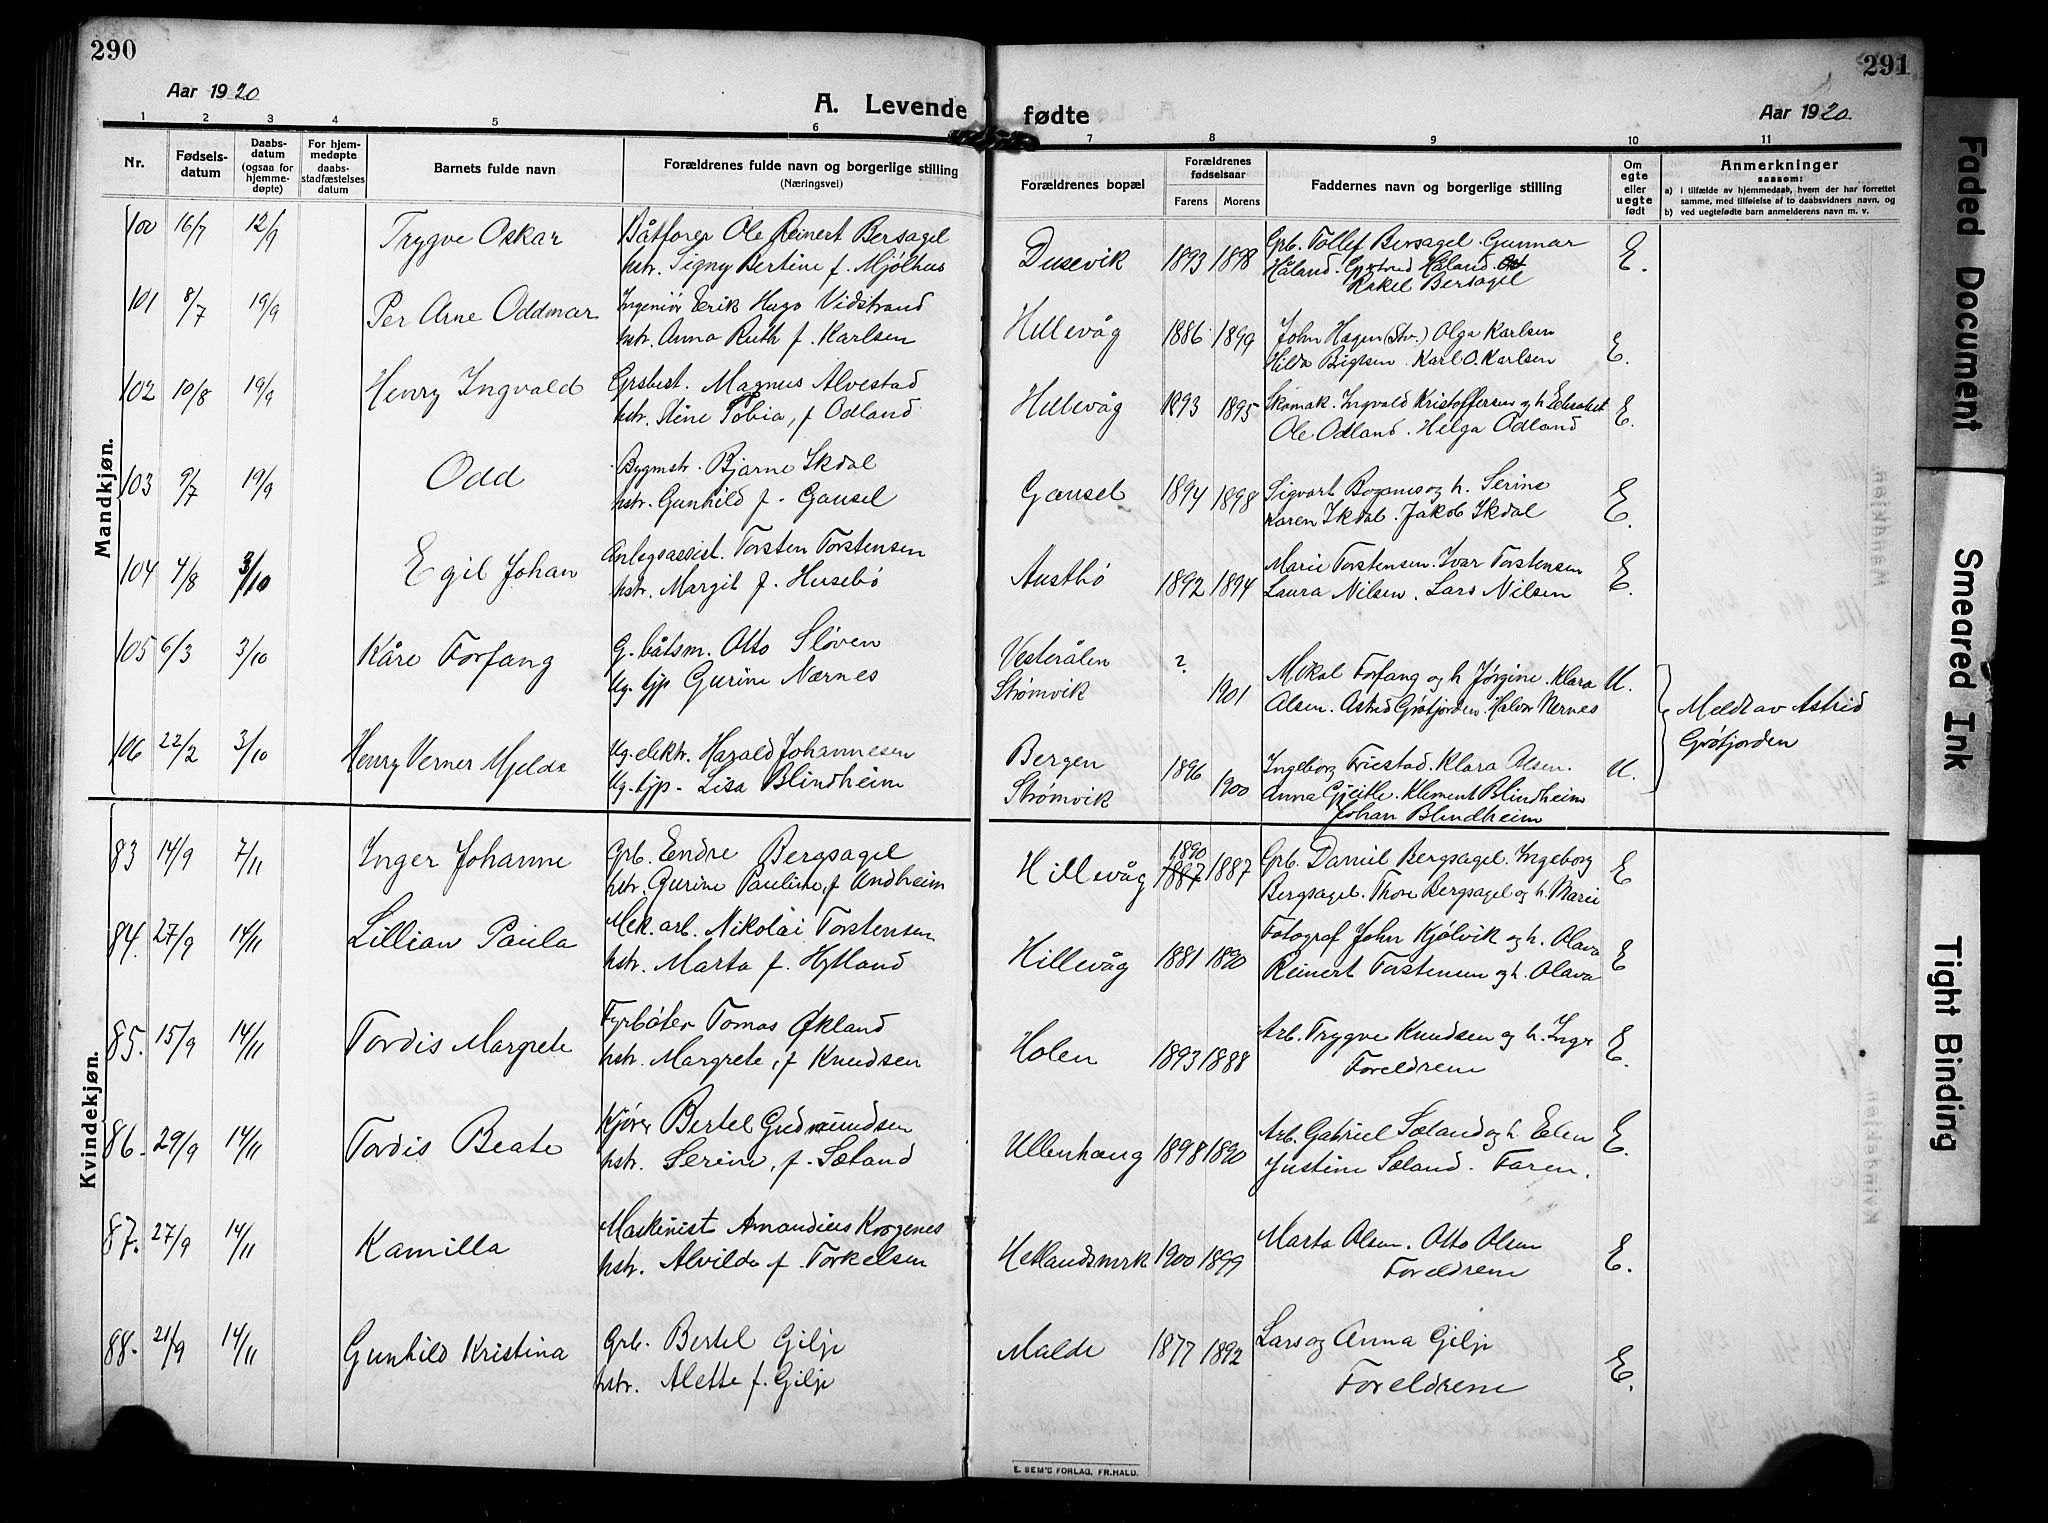 290
291
Aar 1920
Aar 1920
A. Levende fødte
1 2 3 4 5 6 7 8 9 10 11
Nr.
Fødsels-
datum
Daabs-
datum
(ogsaa for
hjemme-
døpte)
For hjem-
medøpte
daabs-
stadfæstelses
datum
Barnets fulde navn
Forældrenes fulde navn og borgerlige stilling
(Næringsvei)
Forældrenes bopæl
Forældrenes
fødselsaar
Farens Morens
Faddernes navn og borgerlige stilling
Om
egte
eller
uegte
født
Anmerkninger
saasom:
a) i tilfælde av hjemmedaab, hvem der har forrettet
samme, med tilføielse af to daabsvidners navn, og
b) ved uegtefødte barn anmelderens navn m. v.
Mandkjøn.
100 16/7 12/9 Trygve Oskar
Båtfører Ole Reinert Bersagel
hstr. Signy Bertine f. Mjølhus
Dusevik 1893 1898
Grb. Tollef Bersagel. Gunnar
Håland. Gjertrud Håland.
Rakel Bersagel
E.
101 8/7 19/9 Per Arne Oddmar
Ingeniør Erik Hugo Vidstrand
hstr. Anna Ruth f. Karlsen
Hillevåg 1886 1899
John Hagen (Stv.) Olga Karlsen
Hilda Karl O. Karlsen
E.
102 10/8 19/9 Henry Ingvald
Grsbest. Magnus Alvestad
hstr. Tobia, f Odland
Hillevåg 1893 1895
Skomak. Ingvald Kristoffersen og h Elisabet
Ole Odland. Helga Odland
E.
103 9/7 19/9 Odd
Bygmstr. Bjarne Ikdal
hstr. Gunhild f. Gausel
Gausel 1894 1898
Sigvart og h. Serine
Karen Ikdal. Jakob Ikdal
E.
104 4/8 3/10 Egil Johan
Anlegsassist. Torsten Torstensen
hstr. Margit f. Husebø
Austbø 1892 1894
Marie Torstensen. Ivar Torstensen
Laura Nilsen. Lars Nilsen
E.
105 6/3 3/10 Kåre Forfang
G. båtsm. Otto Sløven
Ug. tjp Gurine Nærnes
Vesterålen ?
Strømvik 1901
Mikal Forfang og h Jørgine. Klara
Alsen. Astrid Grøtjorden. Halvor Nernes
U.
106 22/2 3/10 Henry Verner Mjelde
Ug. elektr. Harald Johannesen
Ug. tjp. Lisa Blindheim
Bergen 1896
Strømvik 1900
Ingeborg Friestad. Klara Alsen.
Anna Gjeitle. Klement Blindheim
Johan Blindheim
U.
Meldt av Astrid
Grøtjorden
Kvindekjøn.
83 14/9 7/11 Inger Johanne
Grb. Endre Bergsagel
hstr. Gurine Pauline, f Undheim
Hillevåg 1890 1887 1887
Grb. Daniel Bergsagel. Ingeborg
Bergsagel. Thore Bergsagel og h. Marie
E
84. 27/9 14/11 Lillian Paula
Mek. arb. Nikolai Torstensen
hstr. Marta f. Hytland
Hillevåg 1881 1890
Fotograf John Kjølvik og h. Olava
Reinert Torstensen og h. Olava
E
85. 15/9 14/11 Tordis Margrete
Fyrbøter Tomas Økland
hstr. Margrete, f Knudsen
Holen 1893 1888
Arb. Trygve Knudsen og h. Inga
Foreldrene
E.
86. 29/9 14/11 Tordis Beate
Kjører Bertel Gudmundsen
hstr. Serine, f. Søland
Ullenhaug 1898 1890
Arb. Gabriel Søland og h. Elen
Justine Søland. Faren.
E.
87. 27/9 14/11 Kamilla
Maskinist Amandius Korgenes
hstr. Alvilde f. Torkelsen
Hetlandsmrk 1900 1899
Marta Olsen. Otto Olsen
Foreldrene
E.
88. 21/9 14/11 Gunhild Kristina
Grb. Bertel Gilje
hstr. Alette f. Gilje
Malde 1877 1892
Lars og Anna Gilje
Foreldrene
E.
E. SEM'S FORLAG, FR.HALD.
Faded Document
Smeared Ink
Tight Binding